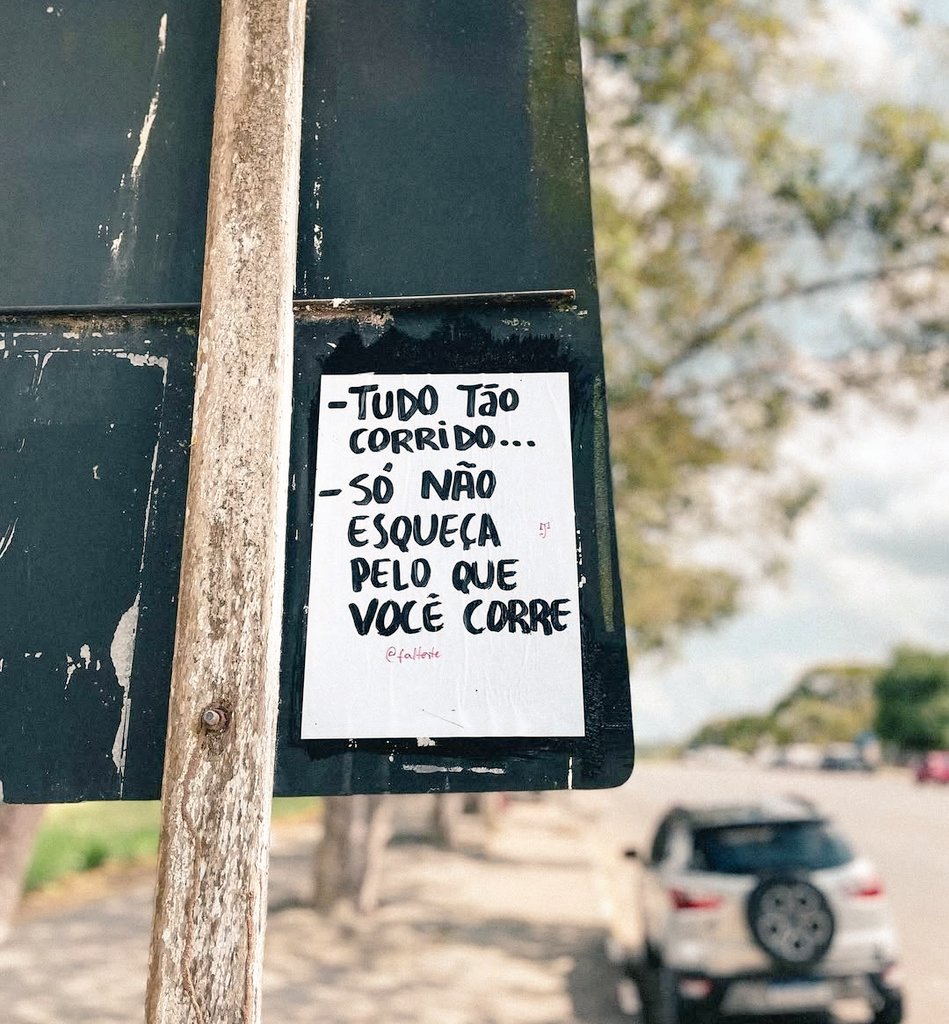 -TUDO TÃO
CORRIDO...
-SÓ NÃO
ESQUEÇA
PELO QUE
VOCÊ CORRE